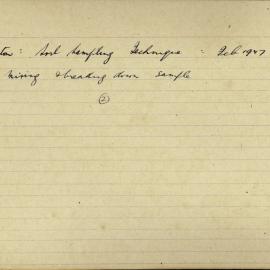 ton: Soil Sampling Technique : Feb 1947
mixing & breaking down sample
②